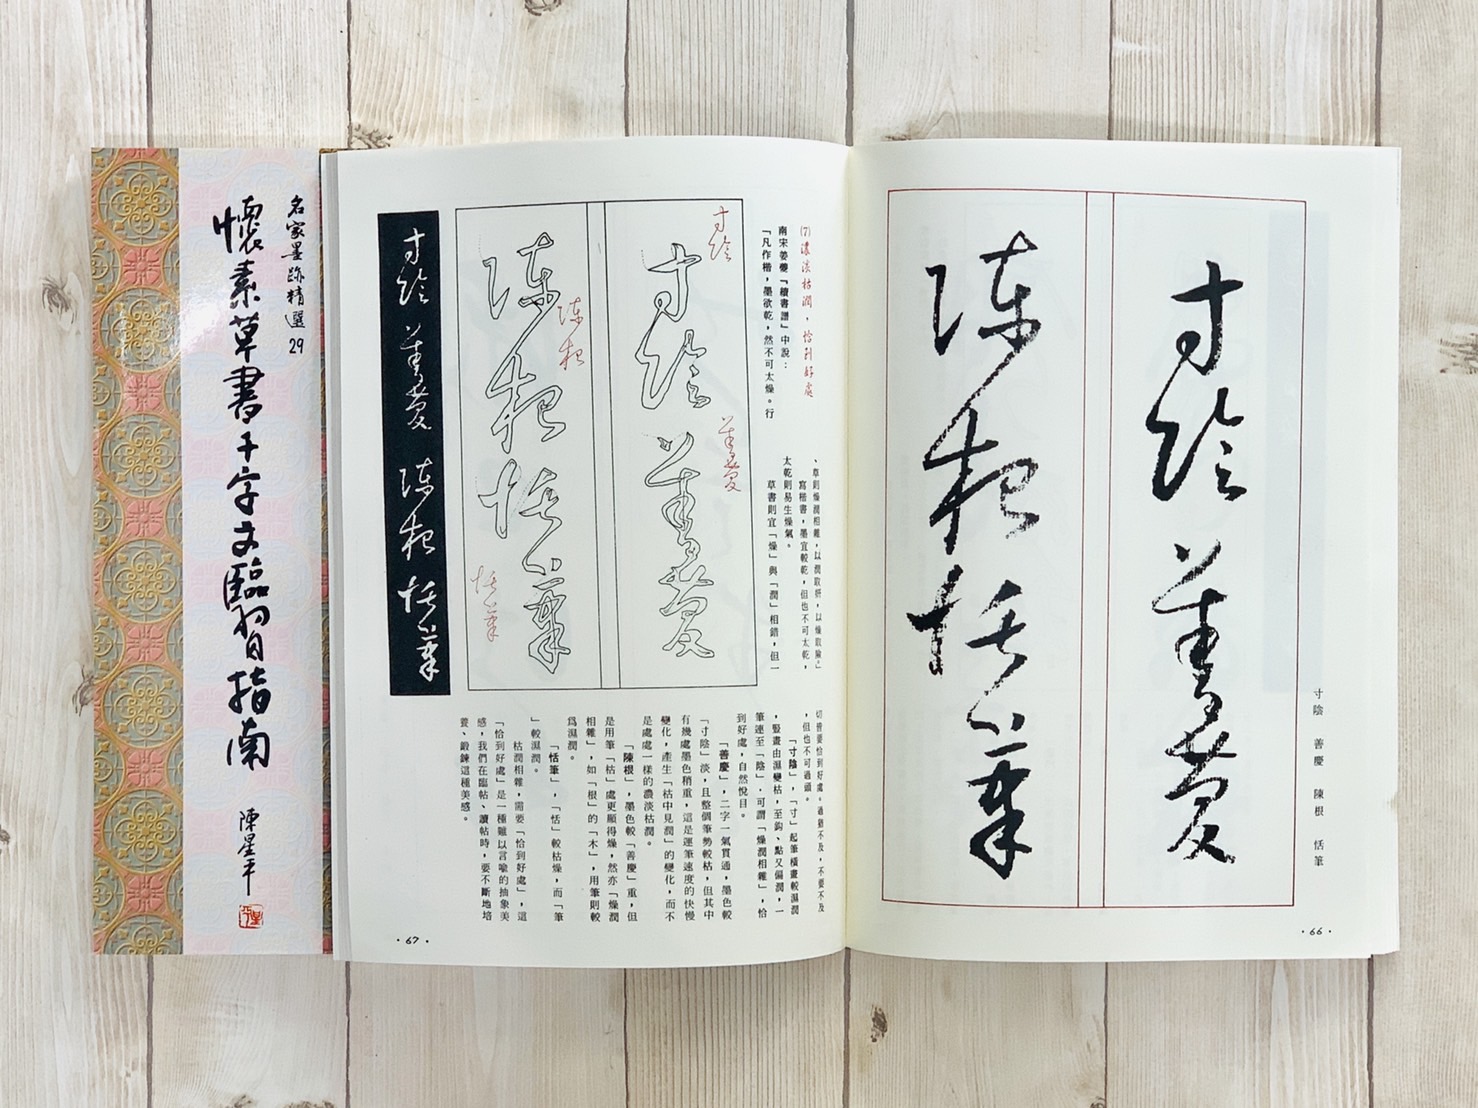 名家墨跡精選29
懷素草書千字文臨習指南
陳星平
寸陰 善慶 陳根 恬筆
寸陰
善慶
陳根
恬筆
·66·
⑺濃淡枯潤，恰到好處
南宋姜夔「續書譜」中說：
「凡作楷，墨欲乾，然不可太燥。行
、草則燥潤相雜，以潤取妍，以燥取險」
寫楷書，墨宜較乾，但也不可太乾，
太乾則易生燥氣。
草書則宜「燥」與「潤」相錯，但一
切皆要恰到好處。過猶不及，不要不及
，但也不可過頭。
「寸陰」，「寸」起筆橫畫較濕潤
，豎畫由濕變枯，至鈎、點又偏潤，一
筆連至「陰」，可謂「燥潤相雜」，恰
到好處，自然悅目。
「善慶」，二字一氣貫通，墨色較
「寸陰」淡，且整個筆勢較枯，但其中
有幾處墨色稍重，這是運筆速度的快慢
變化，產生「枯中見潤」的變化，而不
是處處一樣的濃淡枯潤。
「陳根」，墨色較「善慶」重，但
是用筆「枯」處更顯得燥，然亦「燥潤
相雜」，如「根」的「木」，用筆則較
爲濕潤。
「恬筆」，「恬」較枯燥，而「筆
」較濕潤。
枯潤相雜，需要「恰到好處」，這
「恰到好處」是一種難以言喻的抽象美
感，我們在臨帖、讀帖時，要不斷地培
養、鍛鍊這種美感。
寸陰
善慶
陳根
恬筆
寸陰
善慶
陳根
恬筆
寸陰 善慶 陳根 恬筆
·67·